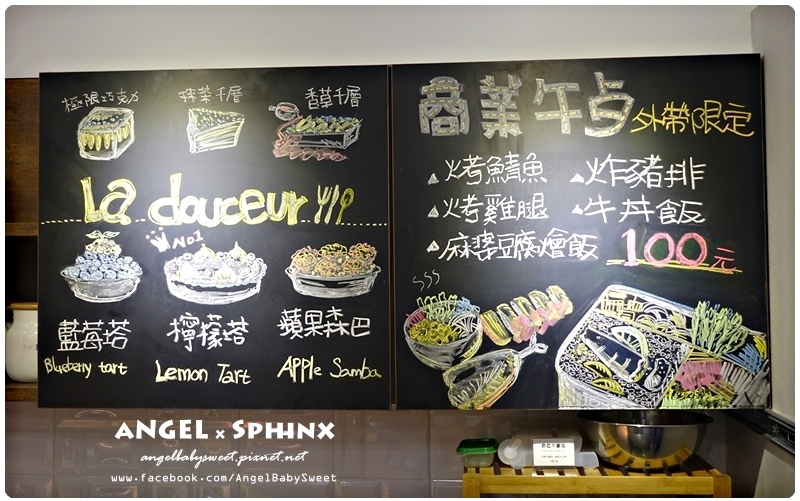 極限巧克力 抹茶千層 香草千層
La douceur
No1
藍莓塔 檸檬塔 蘋果森巴
Blueberry tart Lemon Tart Apple Samba
商業午占 外帶限定
烤鯖魚 炸豬排
烤雞腿 牛丼飯
麻婆豆腐燴飯 100元
ANGEL x SPHINX
angelbabysweet.pixnet.net
www.facebook.com/AngelBabySweet